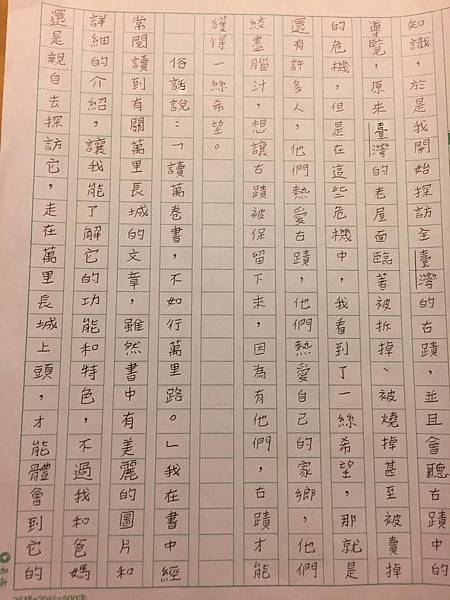 知識，於是我開始探訪全臺灣的古蹟，並且會聽古蹟中的
導覽，原來臺灣的老屋面臨著被拆掉、被燒掉甚至被賣掉
的危機，但是在這些危機中，我看到了一絲希望，那就是
還有許多人，他們熱愛古蹟，他們熱愛自己的家鄉，他們
絞盡腦汁，想讓古蹟被保留下來，因為有他們，古蹟才能
獲得一絲希望。
俗話說：「讀萬卷書，不如行萬里路。」我在書中經
常閱讀到有關萬里長城的文章，雖然書中有美麗的圖片和
詳細的介紹，讓我能了解它的功能和特色，不過我和爸媽
還是親自去探訪它，走在萬里長城上頭，才能體會到它的